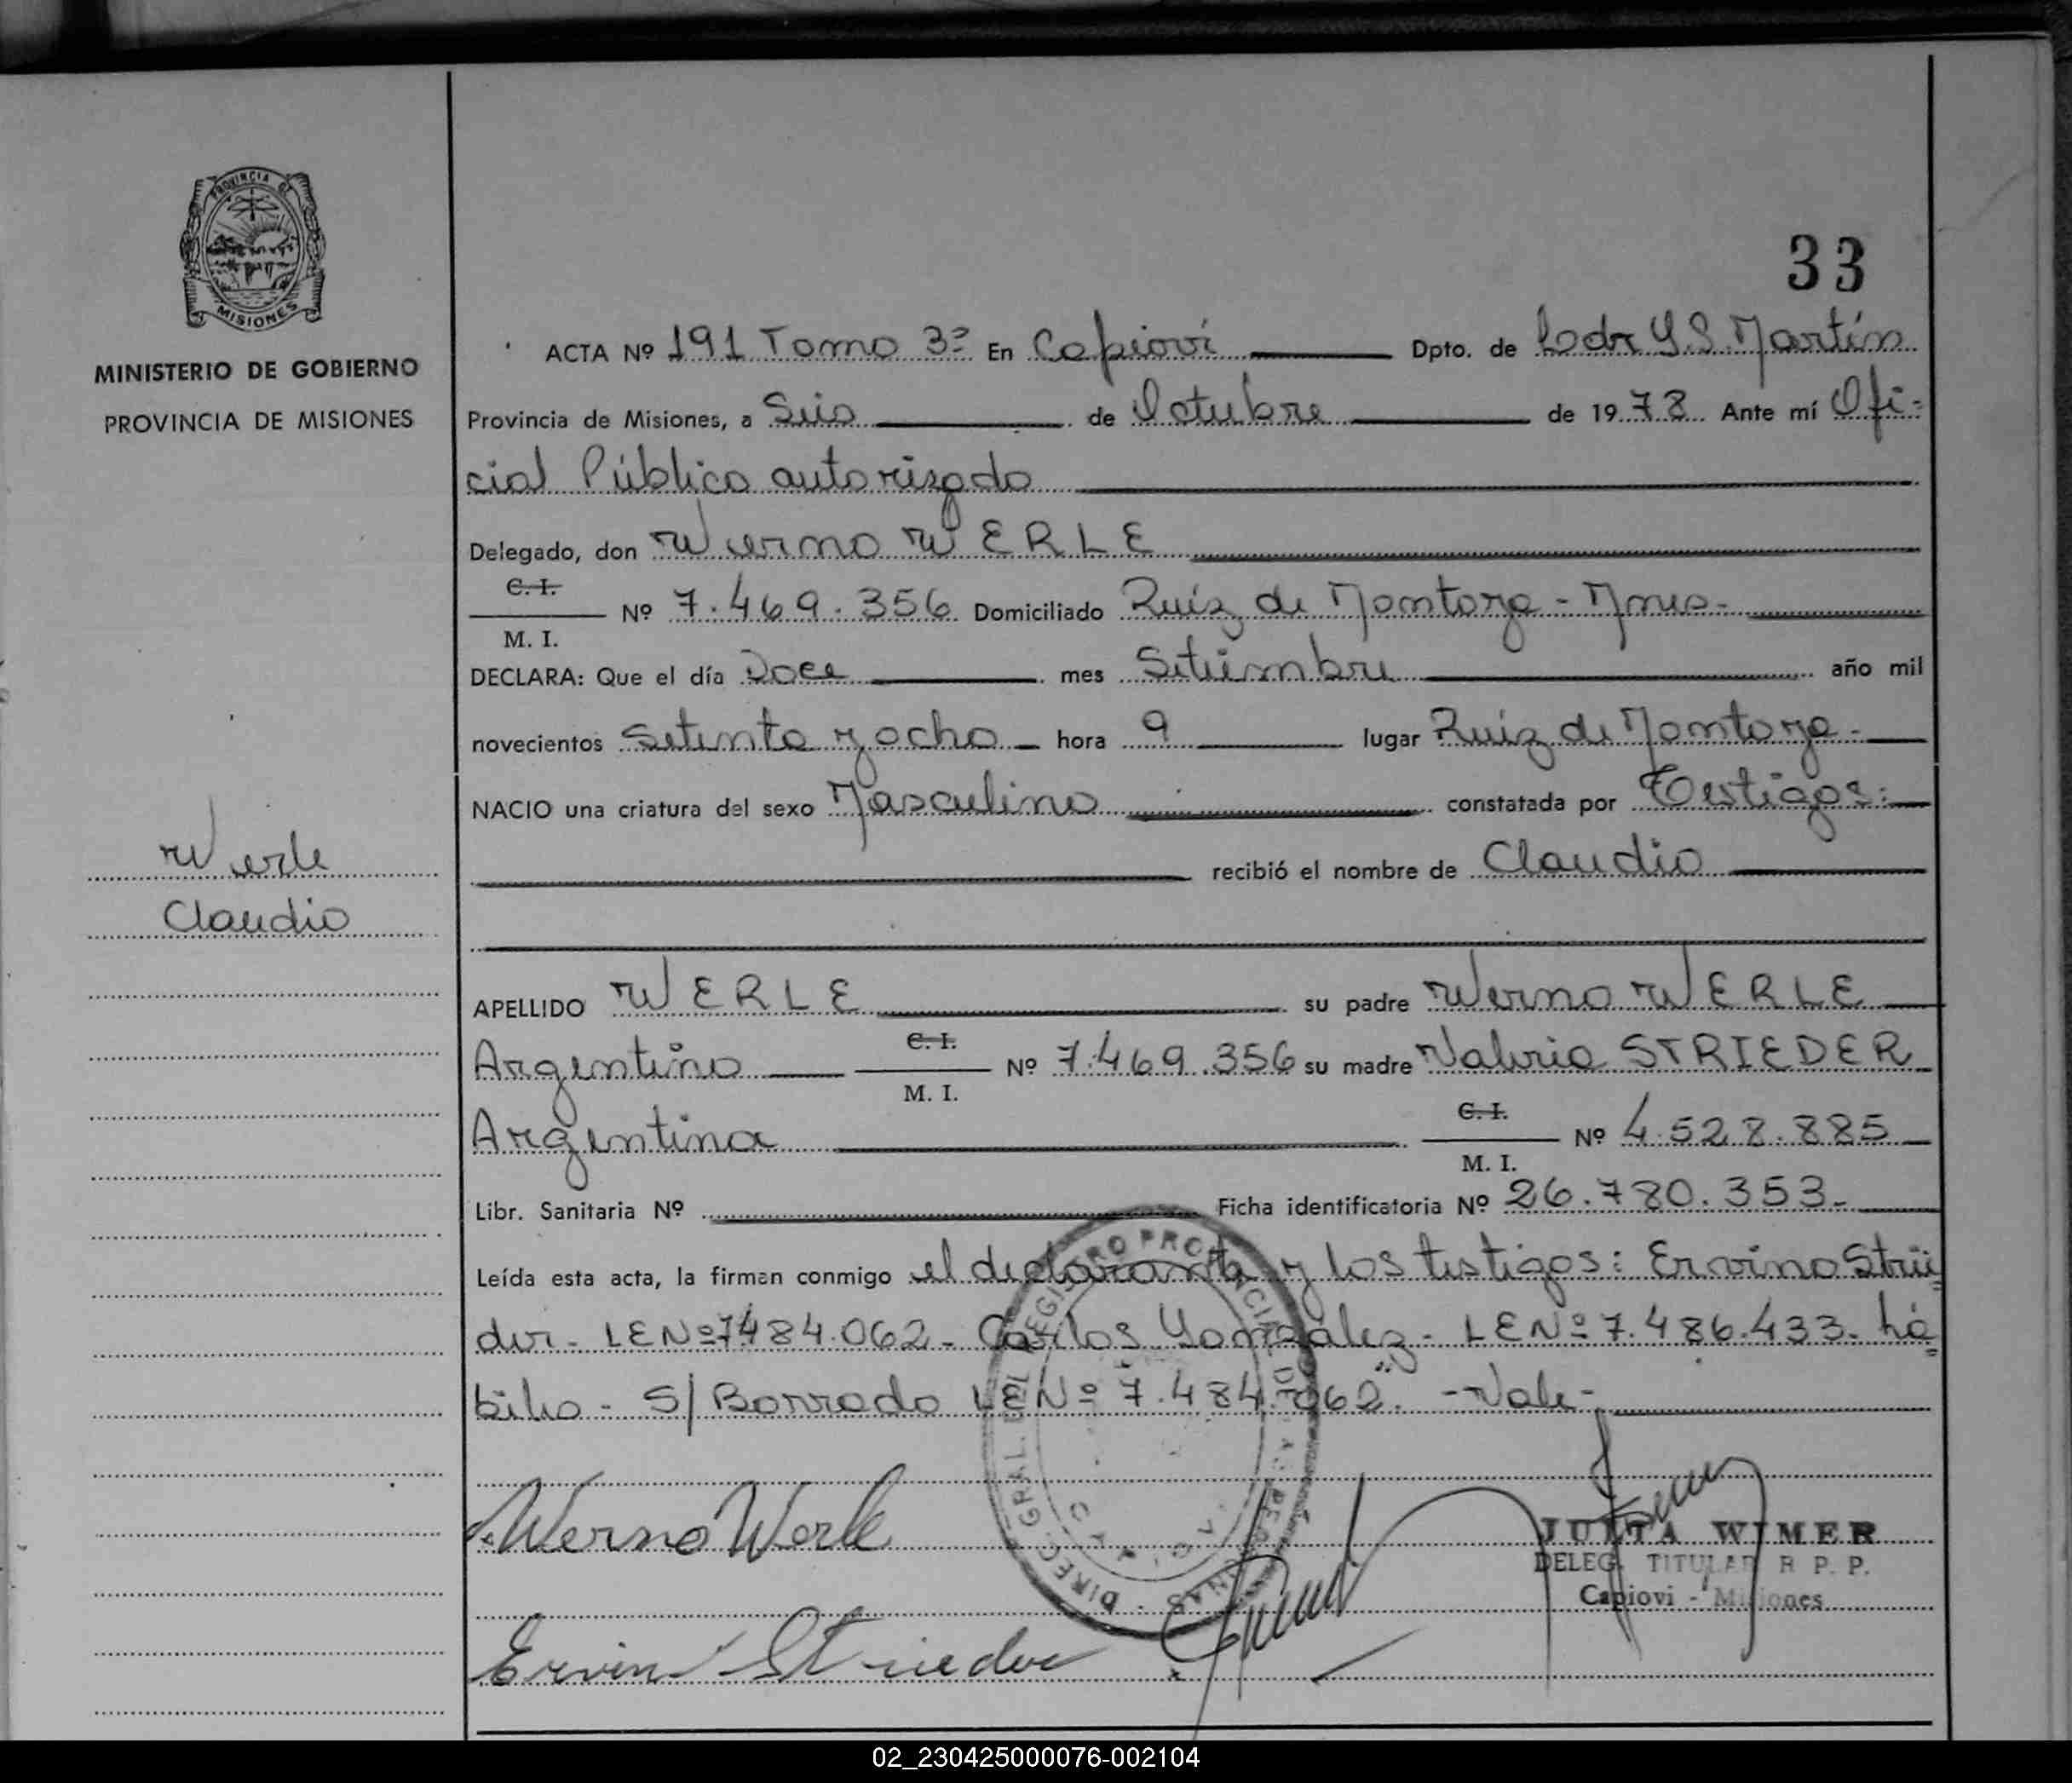 PROVINCIA DE
MISIONES
MINISTERIO DE GOBIERNO
PROVINCIA DE MISIONES
Werle
Claudio
33
ACTA Nº 191 Tomo 3º En Capioví Dpto. de Lodr G. S. Martín
Provincia de Misiones, a Seis de Octubre de 1978 Ante mí Ofi-
cial Público autorizado
Delegado, don Werno WERLE
C. I.
Nº 7.469.356 Domiciliado Ruíz de Montoya - Mnes-
M. I.
DECLARA: Que el día Doce mes Setiembre año mil
novecientos setenta y ocho hora 9 lugar Ruiz de Montoya-
NACIO una criatura del sexo Masculino constatada por Testigos:
recibió el nombre de Claudio
APELLIDO WERLE su padre Werno WERLE
Argentino C. I. M. I. Nº 7.469.356 su madre Valeria STRIEDER
Argentina C. I. M. I. Nº 4.528.885
Libr. Sanitaria Nº Ficha identificatoria Nº 26.780.353-
Leída esta acta, la firman conmigo el declarante y los testigos: Ervino Strie
der- LE Nº 7484.062- Carlos Gonzalez- LE Nº 7.486.433- há
biles- S/ Borrado LE Nº 7.484.062". -Vale-
Werno Werle
JULIA WIMER
DELEG. TITULAR R P. P.
Capiovi - Misiones
Ervin Strieder
DIREC. GRAL. DEL REGISTRO PROVINCIAL DE LAS PERSONAS
CAPIOVI
02_230425000076-002104